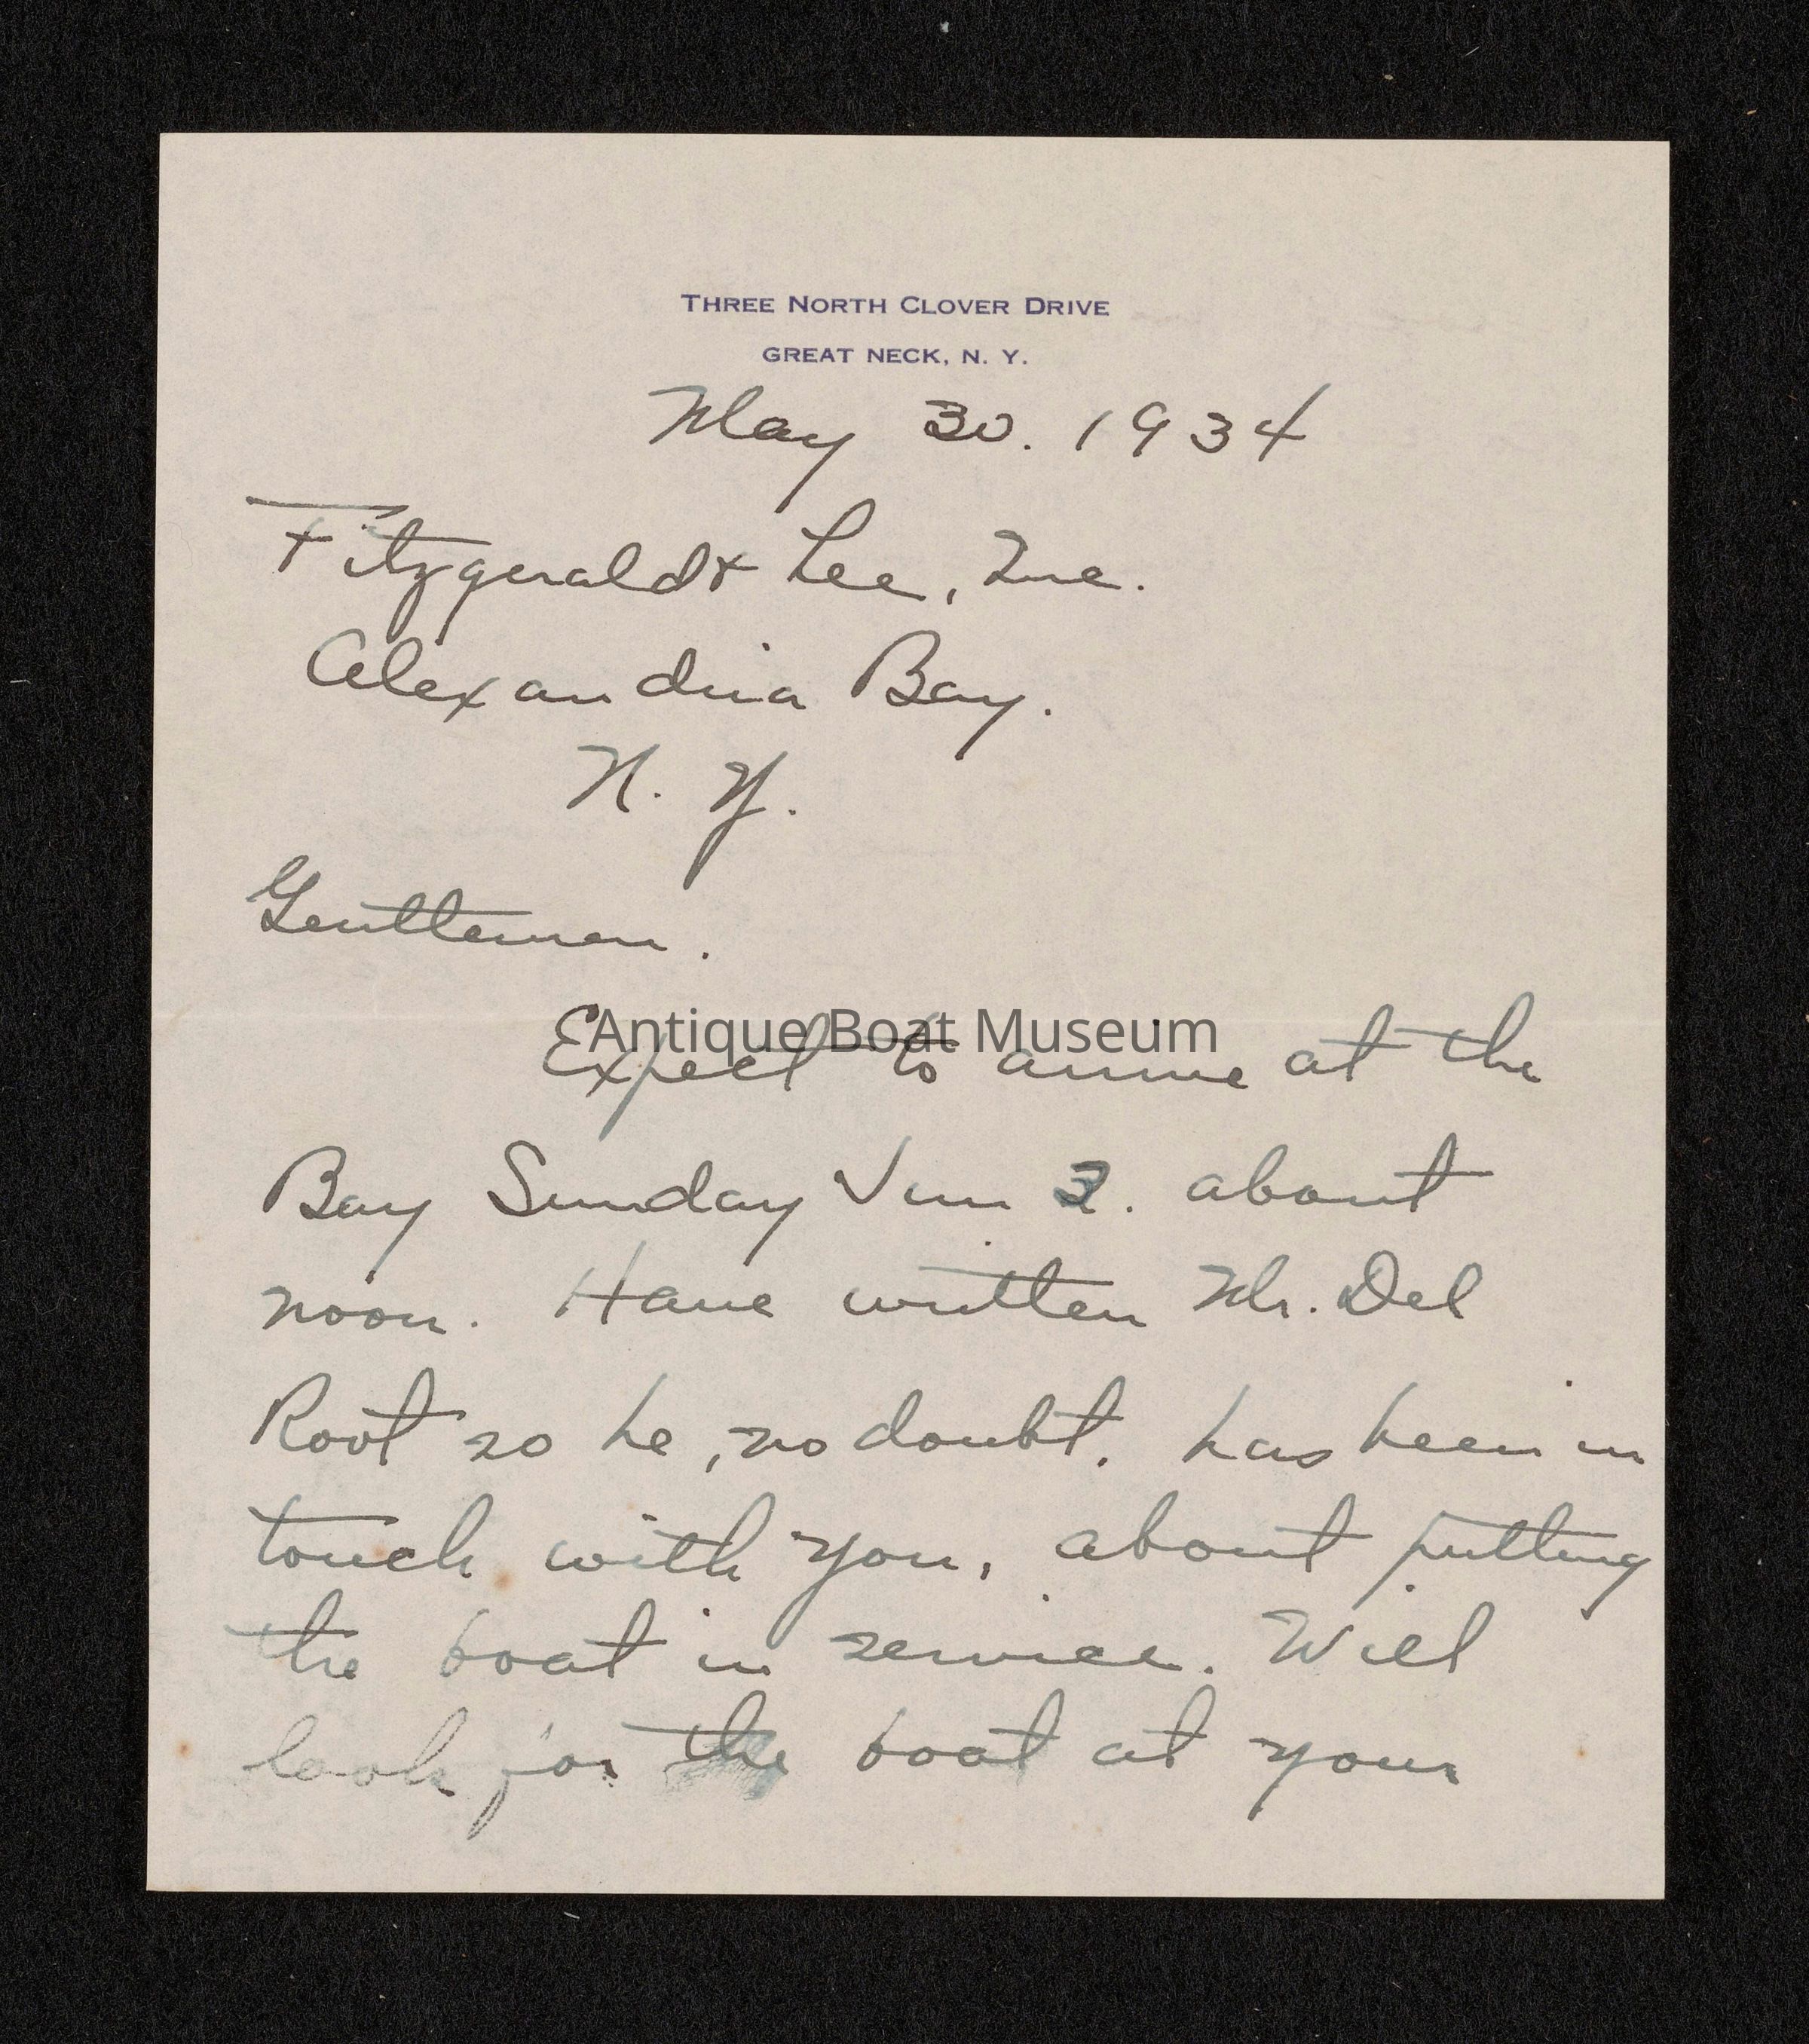 THREE NORTH CLOVER DRIVE
GREAT NECK, N. Y.
May 30. 1934
Fitzgerald & Lee, Inc.
Alexandria Bay.
N. Y.
Gentlemen.
Antique Boat Museum
Expect to arrive at the
Bay Sunday June 3. about
noon. Have written Mr. Del
Root so he, no doubt, has been in
touch with you, about putting
the boat in service. Will
look for the boat at your